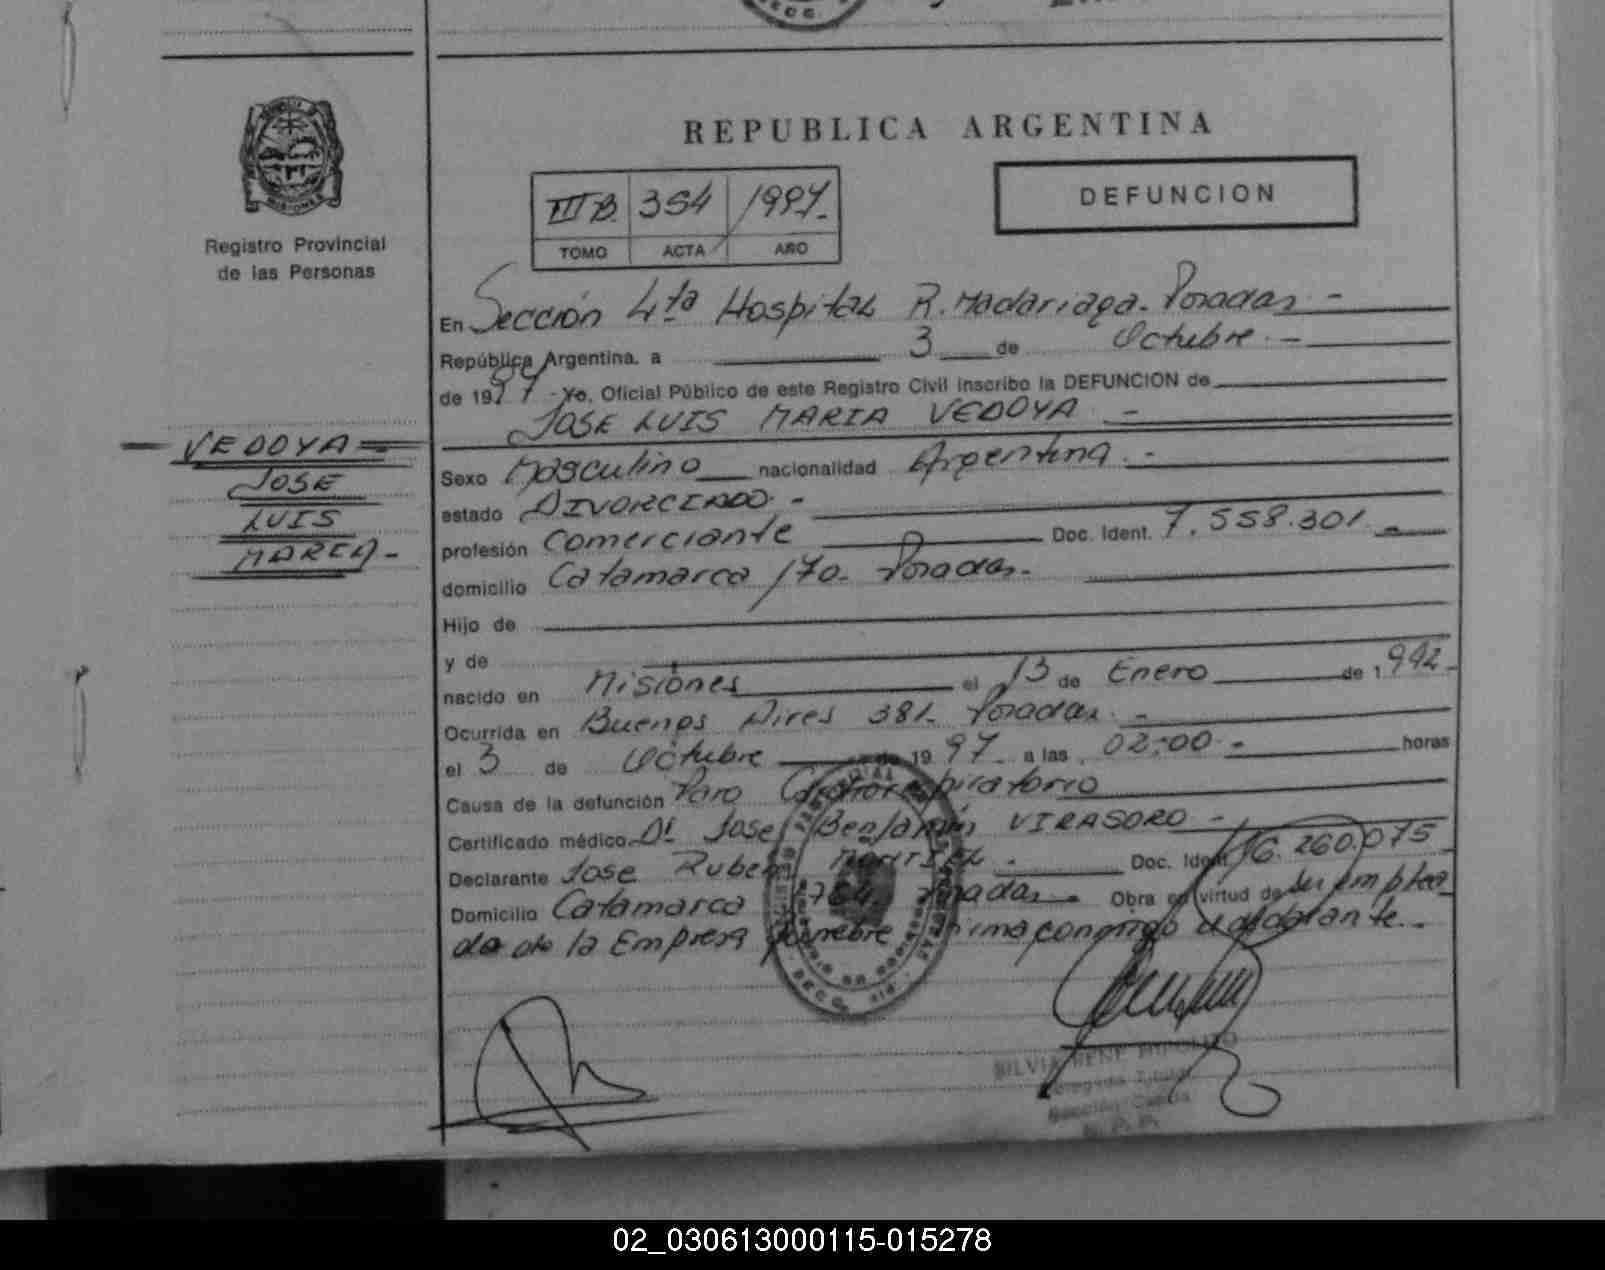 REPUBLICA ARGENTINA
Registro Provincial
de las Personas
III B. 354 1997.
TOMO ACTA AÑO
DEFUNCION
VEDOYA
JOSE
LUIS
MARIA -
En Sección 4ta Hospital R. Madariaga. Posadas. -
República Argentina. a 3 de Octubre. -
de 1997 - Yo. Oficial Público de este Registro Civil inscribo la DEFUNCION de
JOSE LUIS MARIA VEDOYA -
Sexo Masculino nacionalidad Argentina. -
estado DIVORCIADO -
profesión Comerciante Doc. Ident. 7.558.301. -
domicilio Catamarca 170. Posadas. -
Hijo de
y de
nacido en Misiones el 13 de Enero de 1942. -
Ocurrida en Buenos Aires 381. Posadas. -
el 3 de Octubre de 1997. a las 02:00. - horas
Causa de la defunción Paro Cardiorrespiratorio
Certificado médico Dr Jose Benjamin VIRASORO -
Declarante Jose Ruben MONTIEL. Doc. Ident. 16.260.075
Domicilio Catamarca Posadas. Obra en virtud de Ser emplea
do de la Empresa funebre firma conmigo el declarante. -
SILVIA RENE HIPOLITO
02_030613000115-015278